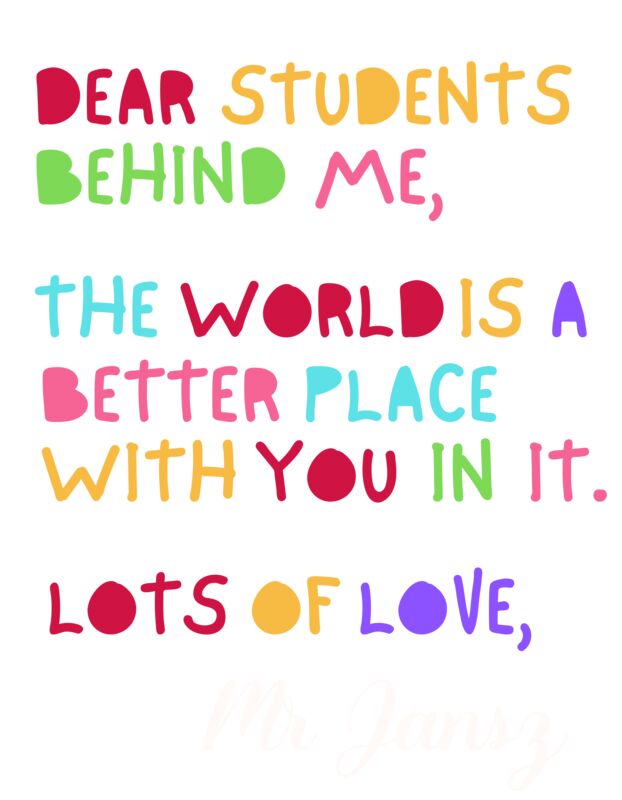 DEAR STUDENTS
BEHIND ME,
THE WORLD IS A
BETTER PLACE
WITH YOU IN IT.
LOTS OF LOVE,
Mr Jansz